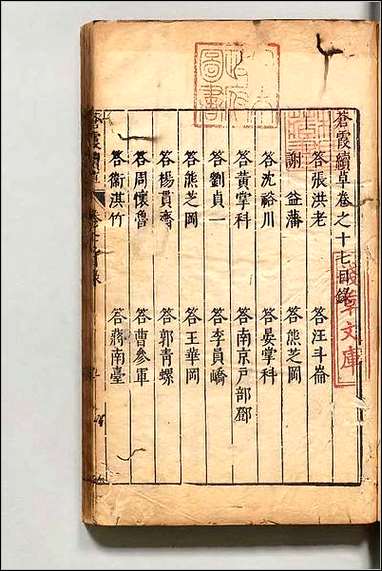 蒼霞續草卷之十七目錄
答張洪老 答汪斗崙
謝益藩 答熊芝岡
答沈裕川 答晏掌科
答黃掌科 答南京戶部鄧
答劉貞一 答李員嶠
答熊芝岡 答王華岡
答楊貢齋 答郭青螺
答周懷魯 答曹參軍
答衞淇竹 答蔣南臺
蒼霞續草
淺草文庫
圖書